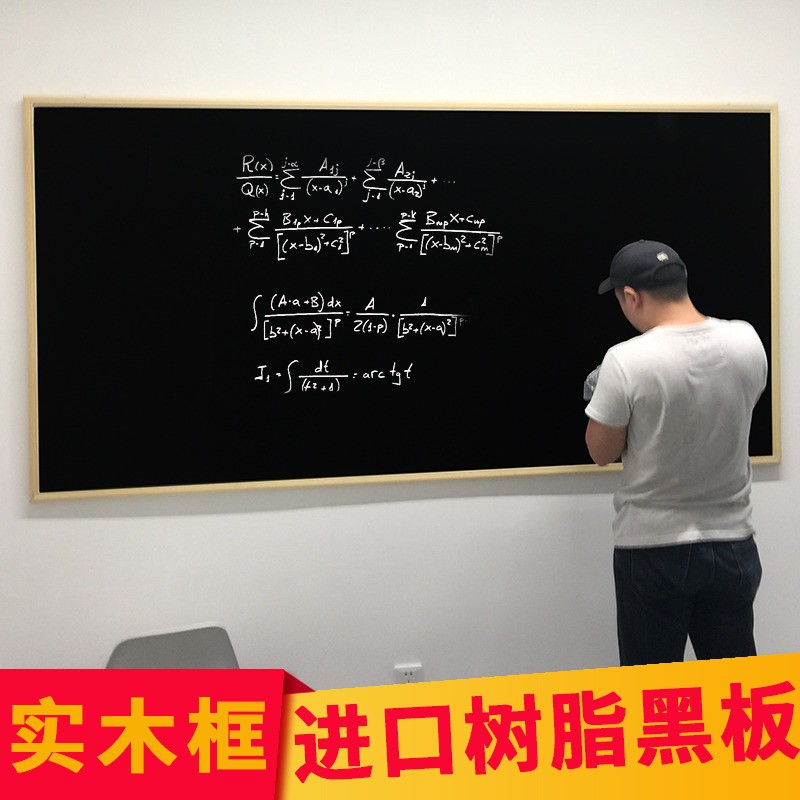 R(x)/Q(x) = ∑_{j=1}^{j=α} A_{1j}/(x-a_1)^j + ∑_{j=1}^{j=β} A_{2j}/(x-a_2)^j + ...
+ ∑_{p=1}^{p=k} B_{1p}x+C_{1p}/[(x-b_1)^2+c_1^2]^p + .... ∑_{p=1}^{p=k} B_{mp}x+C_{mp}/[(x-b_m)^2+c_m^2]^p
∫ (A·a+B)dx/[b^2+(x-a)^2]^p = A/2(1-p) · 1/[b^2+(x-a)^2]^{p-
I_1 = ∫ dt/(t^2+1) = arc tg t
实木框
进口树脂黑板